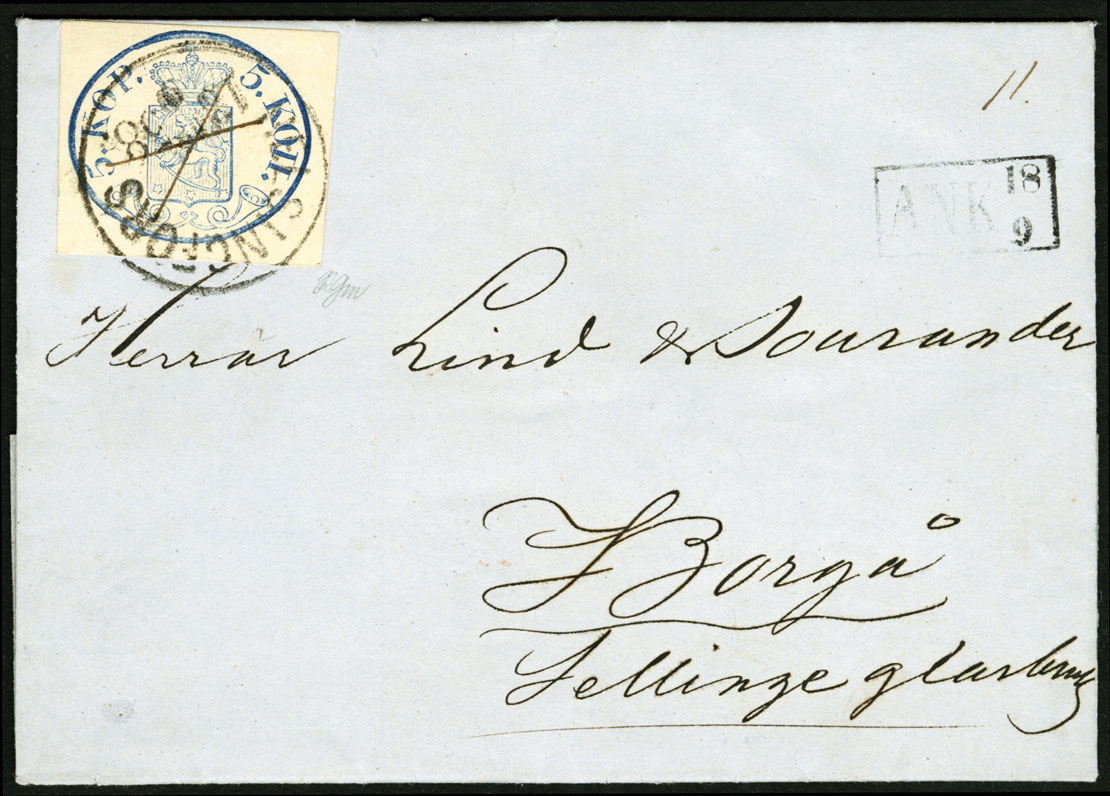 5. KOP. 5. КОП.
HELSINGFORS
11.
ANK 18
9
Herrar Lind & Sourander
Borgå
Sellinge glasbruk